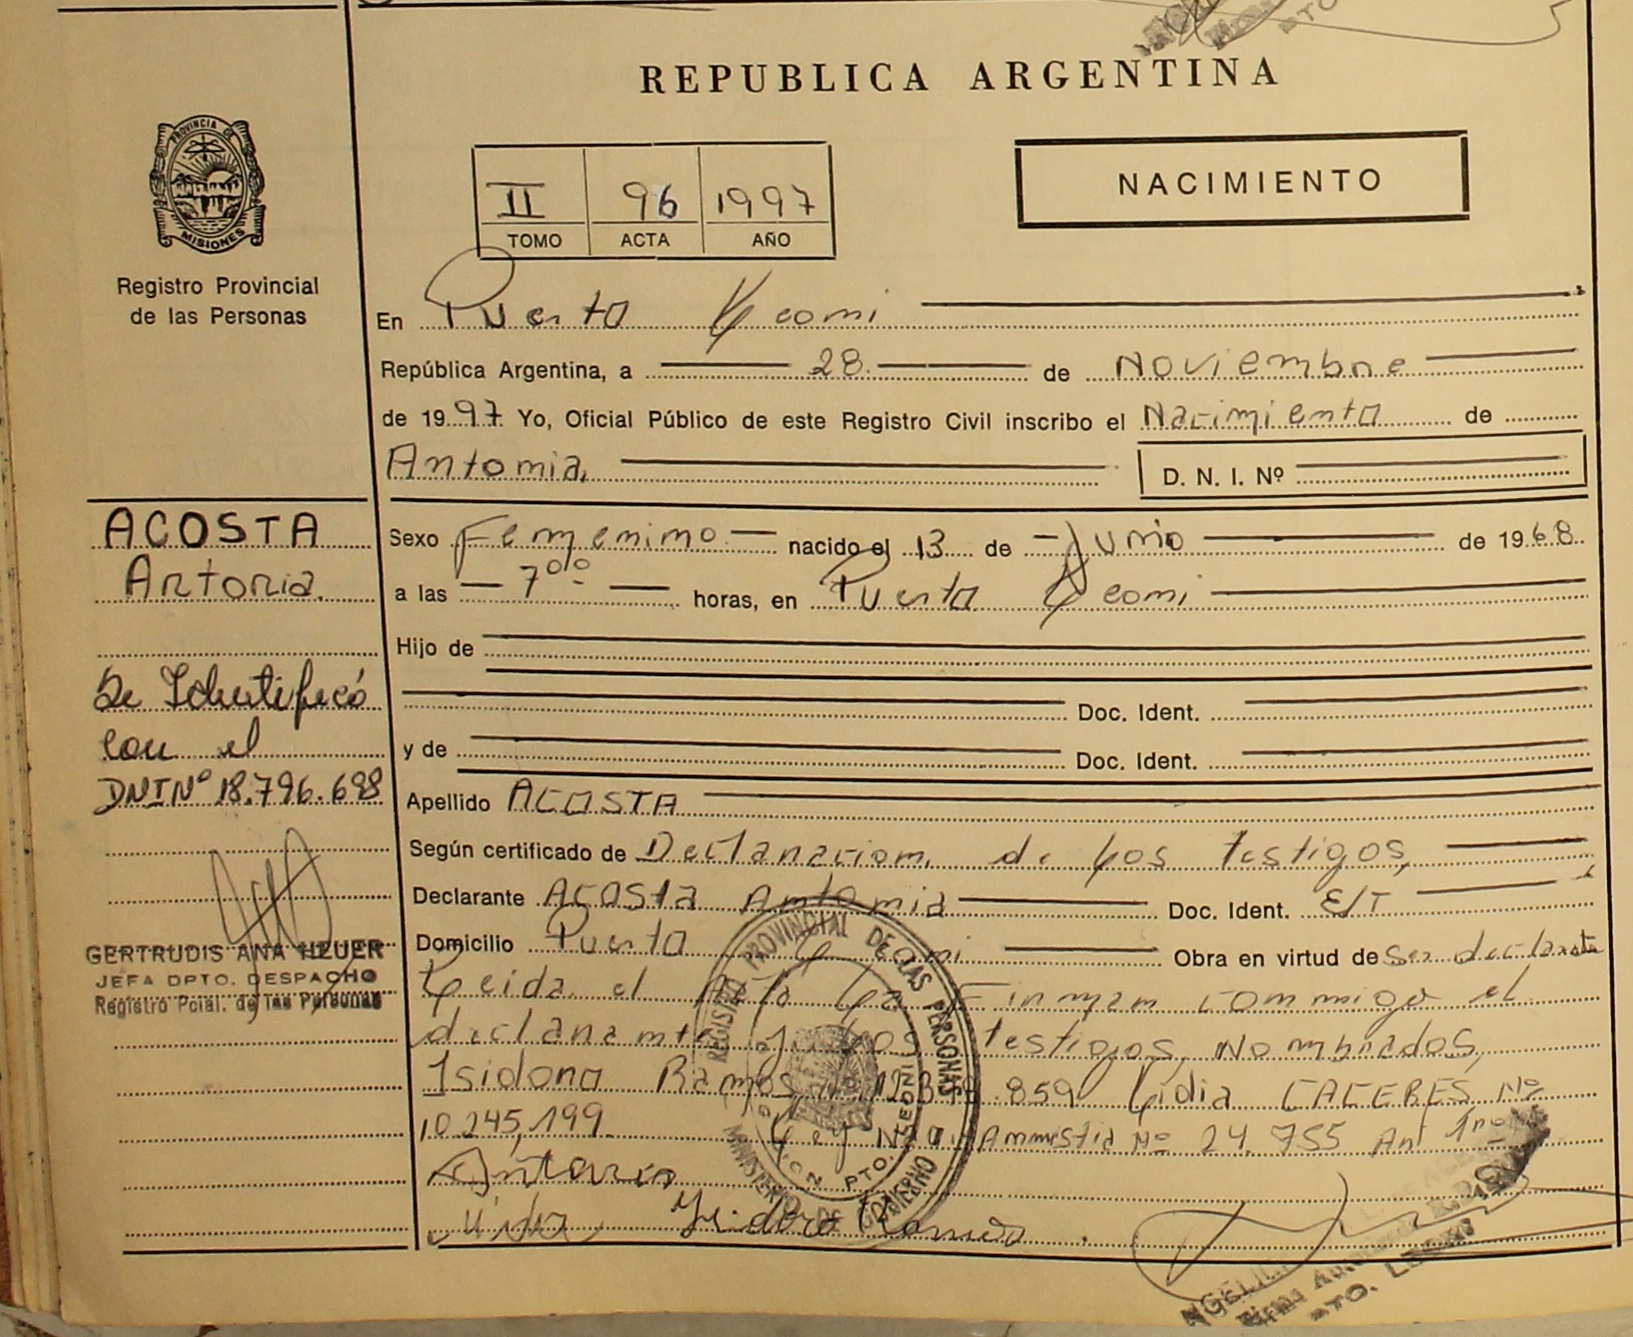 REPUBLICA ARGENTINA
PROVINCIA DE
MISIONES
Registro Provincial
de las Personas
II 96 1997
TOMO ACTA AÑO
NACIMIENTO
En Puerto Leoni
República Argentina, a 28 de Noviembre
de 1997 Yo, Oficial Público de este Registro Civil inscribo el Nacimiento de
Antonia, D. N. I. Nº
ACOSTA
Antonia.
Se Identificó
con el
DNI Nº 18.796.698
GERTRUDIS ANA HEUER
JEFA DPTO. DESPACHO
Registro Pcial. de las Personas
Sexo Femenino nacido el 13 de Junio de 1968
a las 7⁰⁰ horas, en Puerto Leoni
Hijo de
Doc. Ident.
y de Doc. Ident.
Apellido ACOSTA
Según certificado de Declaracion de los testigos,
Declarante ACOSTA Antonia Doc. Ident. E/T
Domicilio Puerto Leoni Obra en virtud de Ser declarante
Leida el Acta La Firman conmigo el
declarante y los testigos, Nombrados,
Isidoro Ramos Nº 12.859 Lidia CACERES Nº
10.245,199. Ley Amnistia Nº 24.755 Art 1ro
Antonia
Isidoro Ramos
REGISTRO PROVINCIAL DE LAS PERSONAS
MINISTERIO DE GOBIERNO
PTO. LEONI